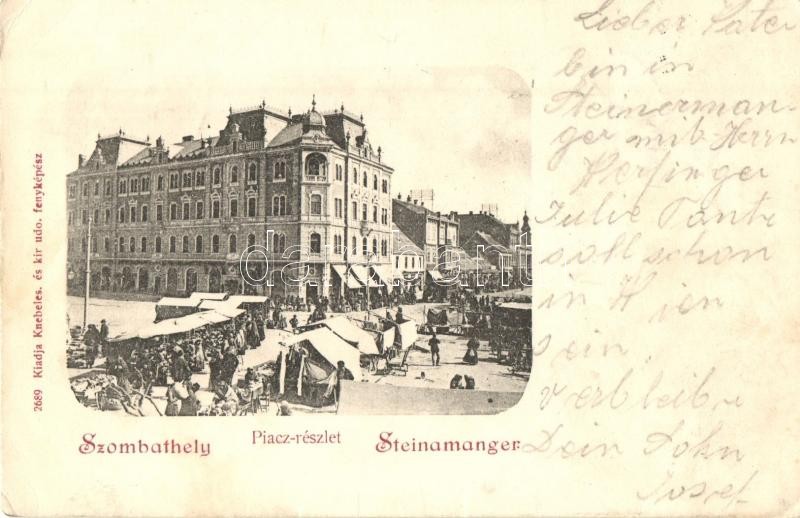 Lieber Vater
bin in
Steinerman-
ger mit Herrn
Julie Tante
soll schon
in Wien
sein
verbleibe
Dein Sohn
Josef
2689 Kiadja Knebeles. és kir udo. fenyképész
Szombathely Piacz-részlet Steinamanger
darabanth